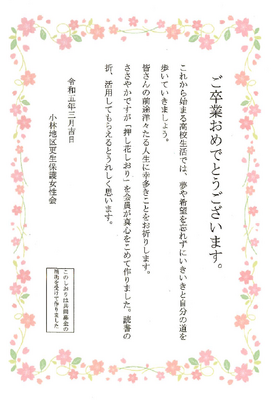 ご卒業おめでとうございます。
これから始まる高校生活では、夢や希望を忘れずにいきいきと自分の道を
歩いていきましょう。
皆さんの前途洋々たる人生に幸多きことをお祈りします。
ささやかですが「押し花しおり」を会員が真心をこめて作りました。読書の
折、活用してもらえるとうれしく思います。
令和五年三月吉日
小林地区更生保護女性会
このしおりは共同募金の
配分を受けて作りました